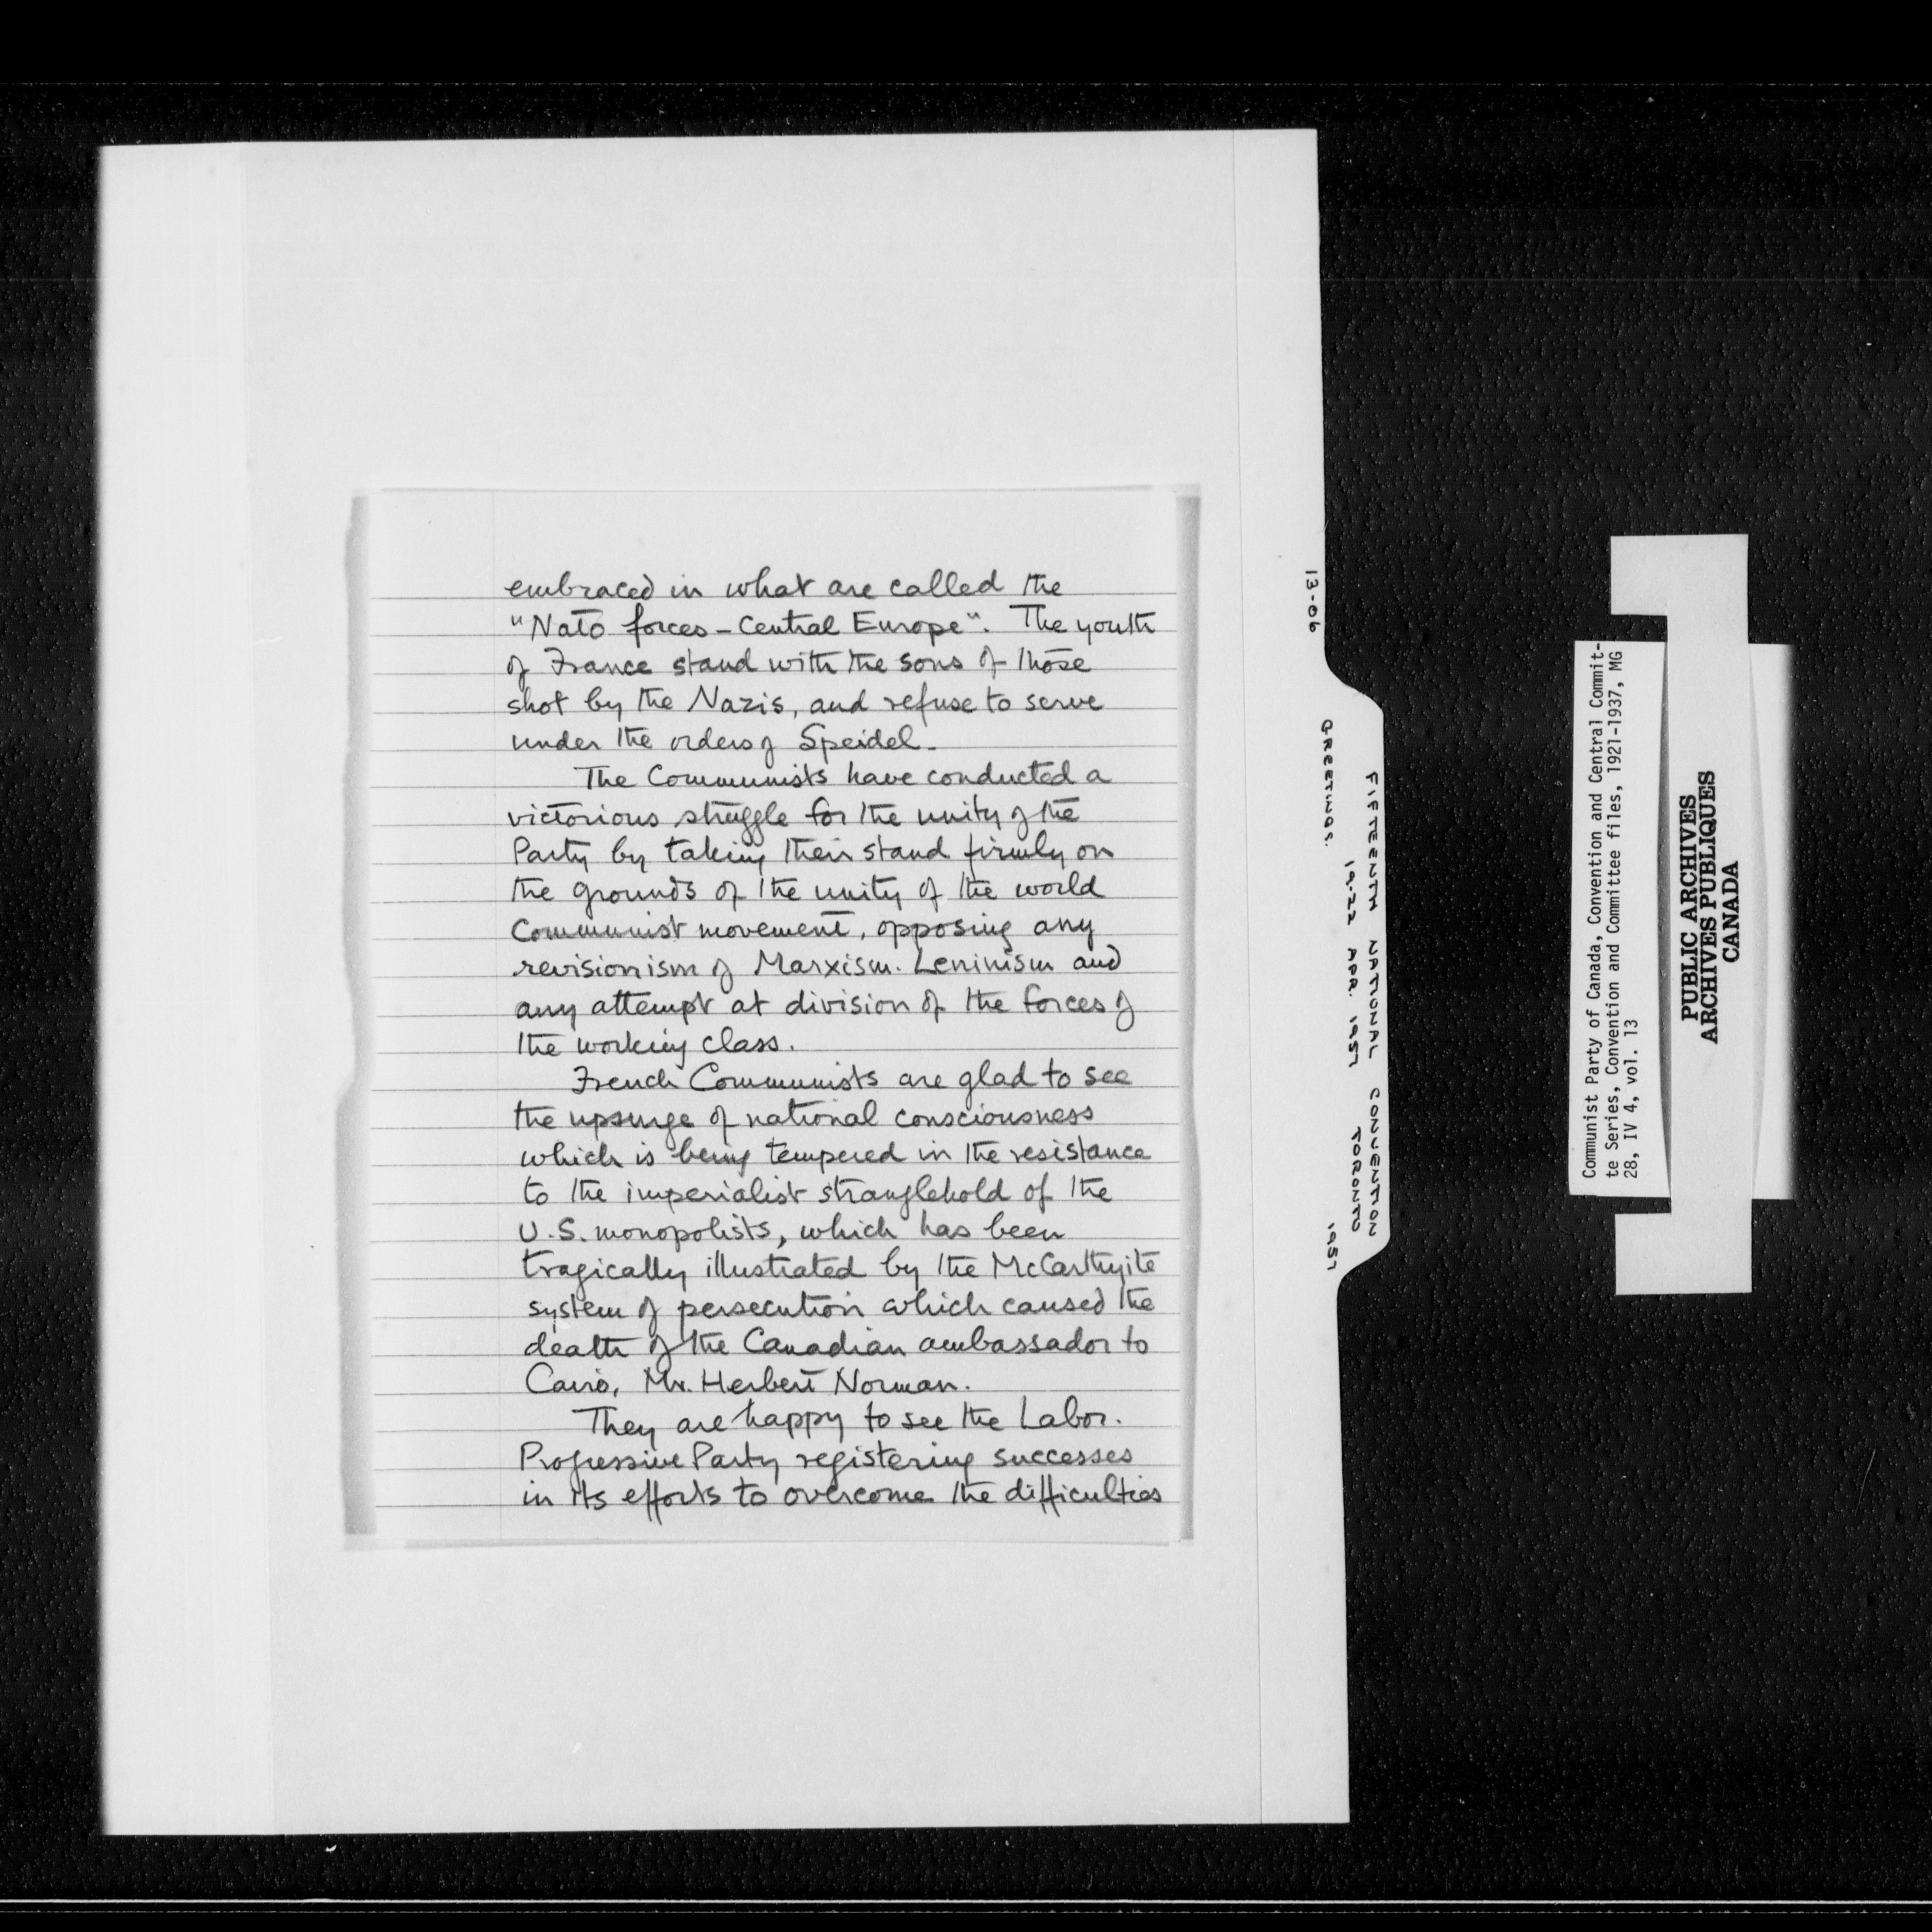 embraced in what are called the
"Nato forces - Central Europe". The youth
of France stand with the sons of those
shot by the Nazis, and refuse to serve
under the orders of Speidel.
The Communists have conducted a
victorious struggle for the unity of the
Party by taking their stand firmly on
the grounds of the unity of the world
Communist movement, opposing any
revisionism of Marxism-Leninism and
any attempt at division of the forces of
the working class.
French Communists are glad to see
the upsurge of national consciousness
which is being tempered in the resistance
to the imperialist stranglehold of the
U.S. monopolists, which has been
tragically illustrated by the McCarthyite
system of persecution which caused the
death of the Canadian ambassador to
Cairo, Mr. Herbert Norman.
They are happy to see the Labor-
Progressive Party registering successes
in its efforts to overcome the difficulties
13-06
FIFTEENTH NATIONAL CONVENTION
19-22 APR. 1957 TORONTO
GREETINGS. 1957
Communist Party of Canada, Convention and Central Commit-
te Series, Convention and Committee files, 1921-1937, MG
28, IV 4, vol. 13
PUBLIC ARCHIVES
ARCHIVES PUBLIQUES
CANADA